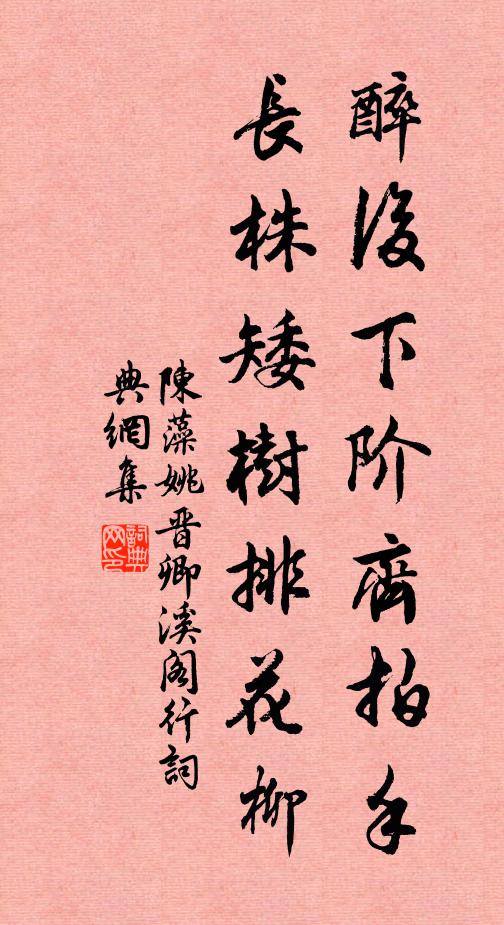 醉後下阶齊拍手
長株矮樹排花柳
陳藻姚晋卿溪阁行詞
典網集
詞典
网印